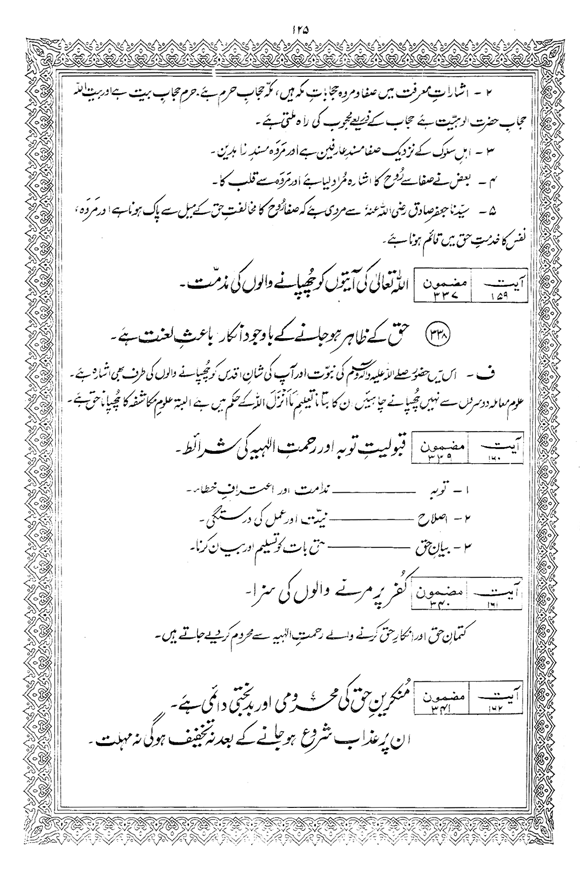 ۱۲۵
۲ - اشاراتِ معرفت میں صفا و مروہ حجاباتِ مکہ ہیں، مکہ حجابِ حرم ہے، حرم حجابِ بیت ہے اور بیت اللہ
حجاب حضرت الوہیّت ہے حجاب کے ذریعے محبوب کی راہ ملتی ہے۔
۳ - اہلِ سلوک کے نزدیک صفا مسندِ عارفین ہے اور مَروَہ مسندِ زاہدین۔
۴ - بعض نے صفا سے رُوح کا اشارہ مُراد لیا ہے اور مَروَہ سے قلب کا۔
۵ - سیّدنا جعفر صادق رضی اللہ عنہٗ سے مروی ہے کہ صفا رُوح کا مخالفتِ حق کے میل سے پاک ہونا ہے اور مَروَہ،
نفس کا خدمتِ حق میں قائم ہونا ہے۔
آیت ۱۵۹ مضمون ۳۳۷ اللہ تعالیٰ کی آیتوں کو چُھپانے والوں کی مذمّت۔
۳۳۸ حق کے ظاہر ہو جانے کے باوجود انکار باعثِ لعنت ہے۔
ف - اس میں حضور صلے اللہ علیہ وآلہ وسلم کی نبوّت اور آپ کی شانِ اقدس کو چُھپانے والوں کی طرف بھی اشارہ ہے۔
علومِ معاملہ دوسروں سے نہیں چُھپانے چاہئیں ان کا بتانا تعلیم مَا اَنْزَلَ اللّٰہ کے حکم میں ہے البتہ علومِ مکاشفہ کا چُھپانا حق ہے۔
آیت ۱۶۰ مضمون ۳۳۹ قبولیتِ توبہ اور رحمتِ الٰہیہ کی شرائط۔
۱ - توبہ ——— ندامت اور اعترافِ خطاء۔
۲ - اصلاح ——— نیّت اور عمل کی درستگی۔
۳ - بیانِ حق ——— حق بات کو تسلیم اور بیان کرنا۔
آیت ۱۶۱ مضمون ۳۴۰ کُفر پر مرنے والوں کی سزا۔
کتمانِ حق اور انکارِ حق کرنے والے رحمتِ الٰہیہ سے محروم کر دیے جاتے ہیں۔
آیت ۱۶۲ مضمون ۳۴۱ مُنکرینِ حق کی محرومی اور بدبختی دائمی ہے۔
ان پر عذاب شروع ہو جانے کے بعد نہ تخفیف ہو گی نہ مہلت۔